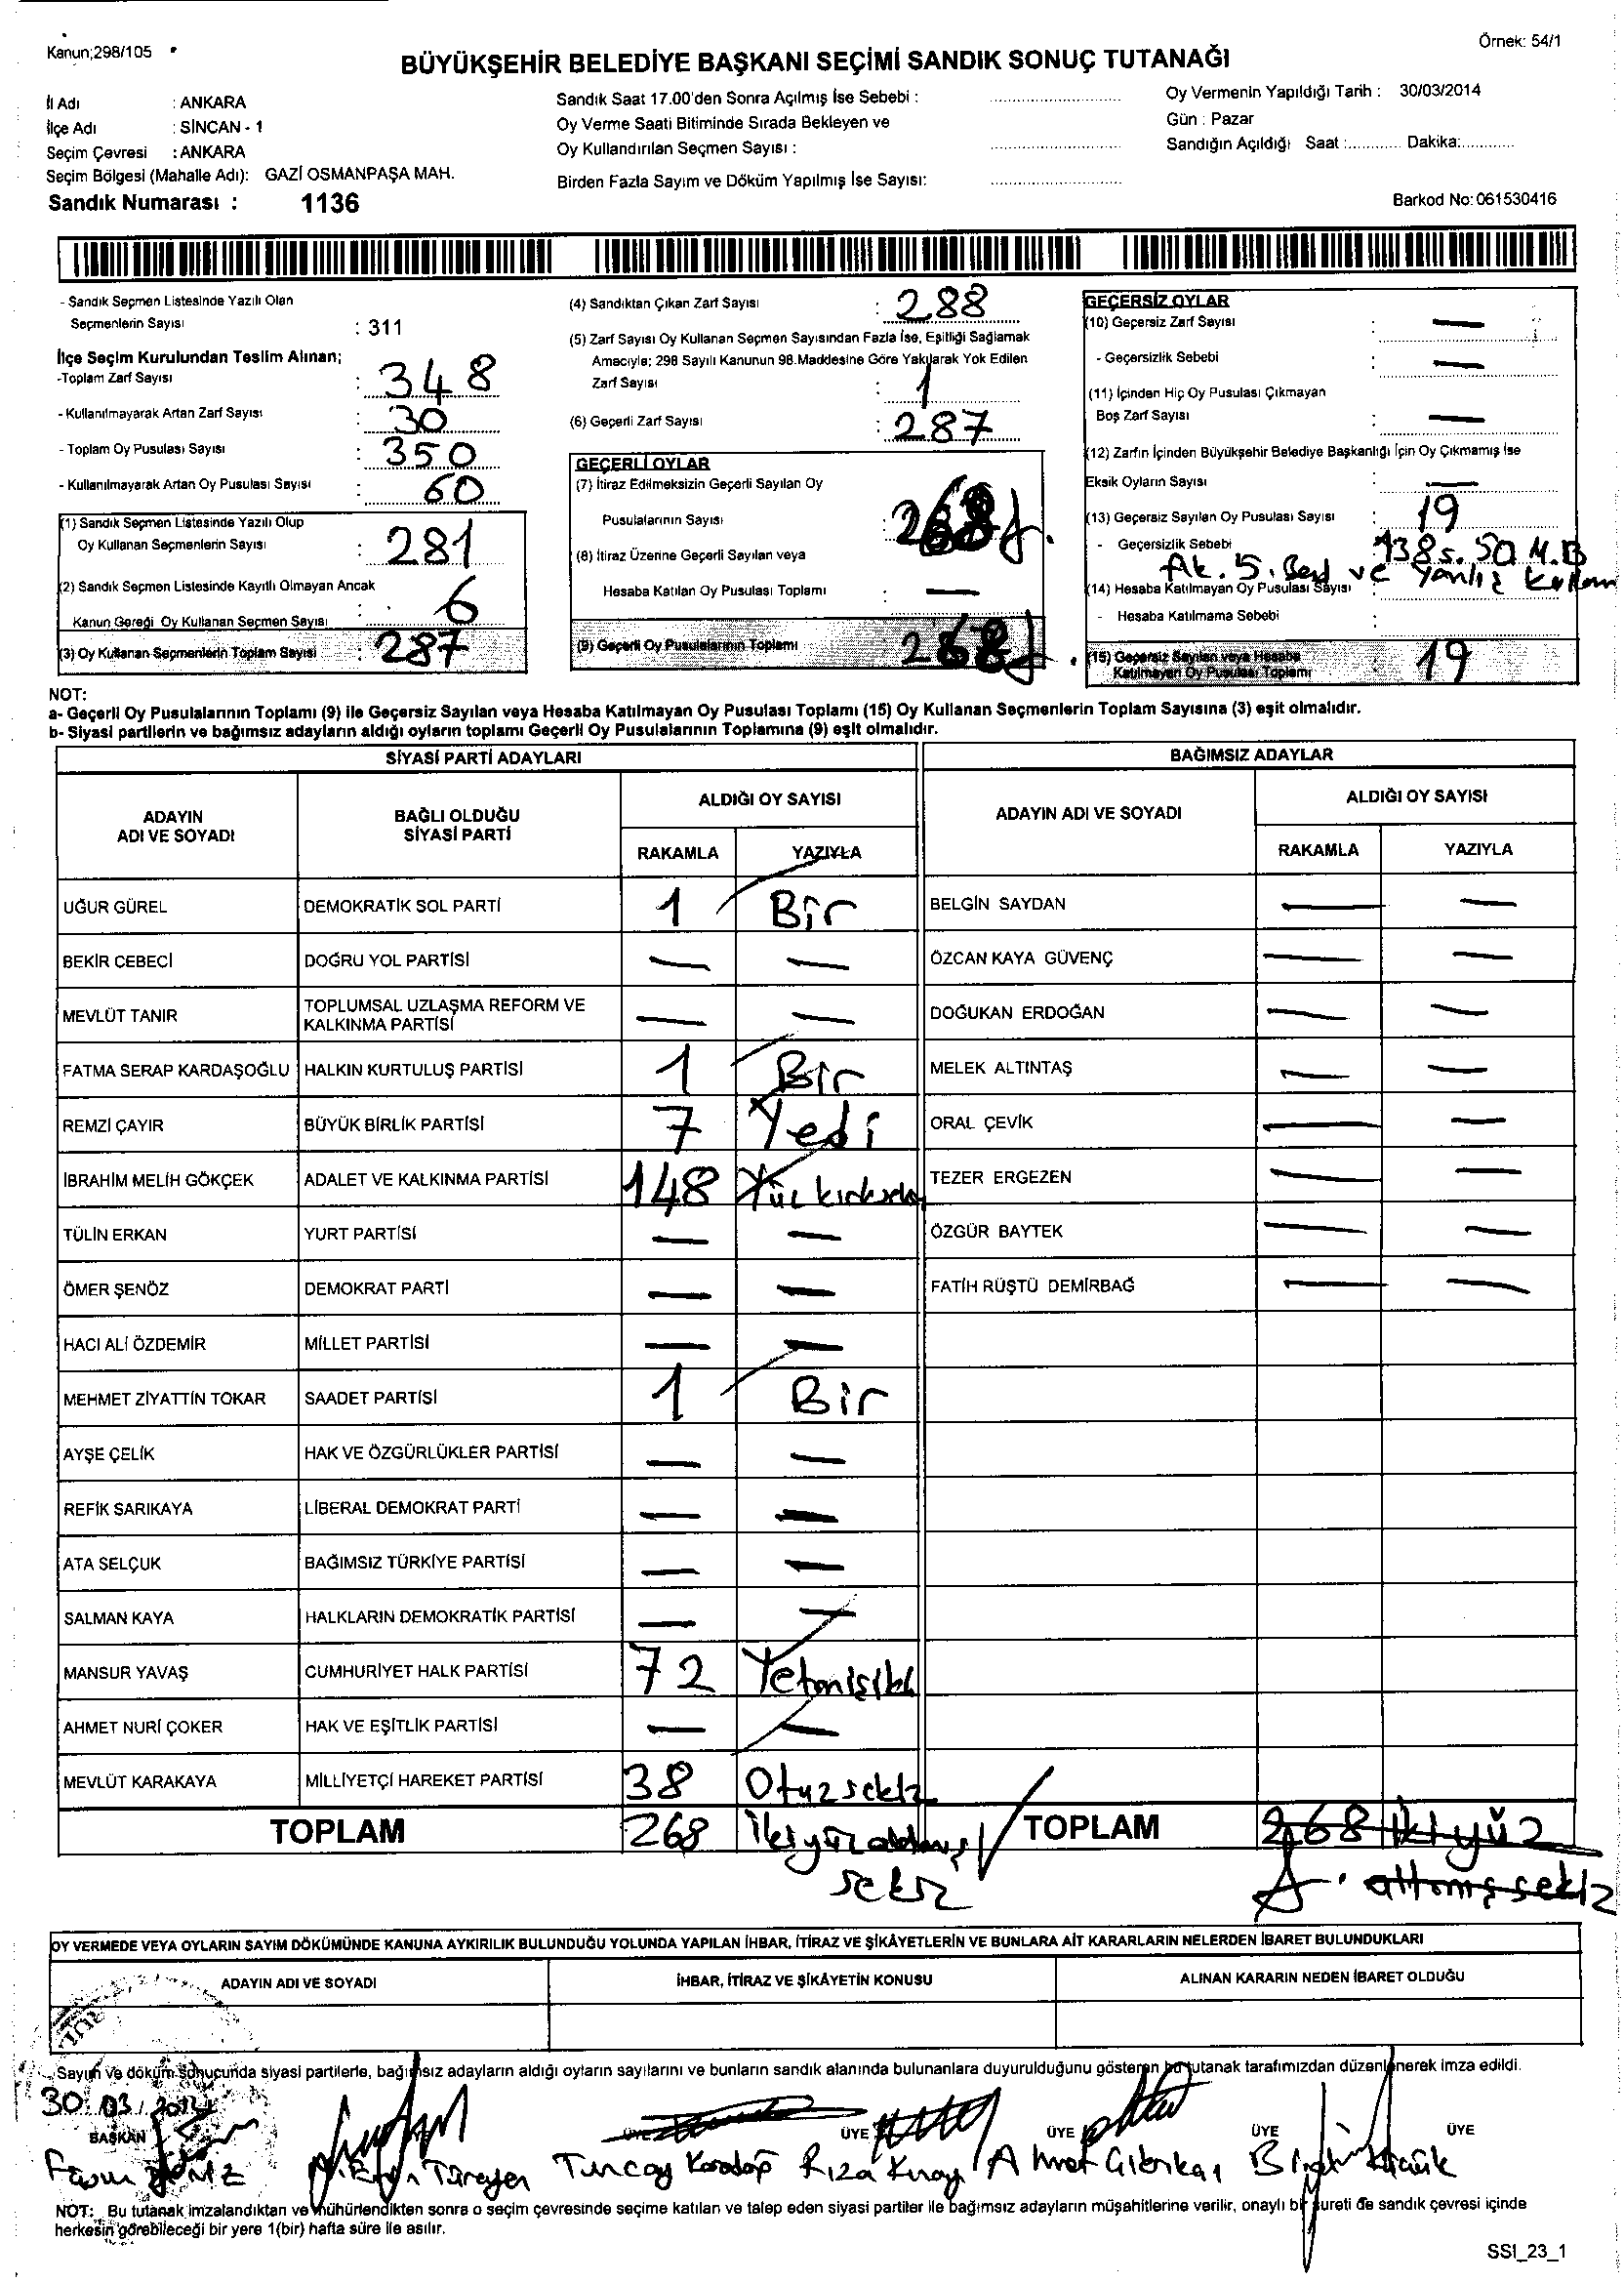 Kanun;298/105
Örnek: 54/1
BÜYÜKŞEHİR BELEDİYE BAŞKANI SEÇİMİ SANDIK SONUÇ TUTANAĞI
İl Adı : ANKARA
İlçe Adı : SİNCAN - 1
Seçim Çevresi : ANKARA
Seçim Bölgesi (Mahalle Adı): GAZİ OSMANPAŞA MAH.
Sandık Numarası : 1136
Sandık Saat 17.00'den Sonra Açılmış İse Sebebi :
Oy Verme Saati Bitiminde Sırada Bekleyen ve
Oy Kullandırılan Seçmen Sayısı :
Birden Fazla Sayım ve Döküm Yapılmış İse Sayısı:
Oy Vermenin Yapıldığı Tarih : 30/03/2014
Gün : Pazar
Sandığın Açıldığı Saat :............ Dakika:............
Barkod No: 061530416
- Sandık Seçmen Listesinde Yazılı Olan
Seçmenlerin Sayısı : 311
İlçe Seçim Kurulundan Teslim Alınan;
-Toplam Zarf Sayısı : 348
- Kullanılmayarak Artan Zarf Sayısı : 30
- Toplam Oy Pusulası Sayısı : 350
- Kullanılmayarak Artan Oy Pusulası Sayısı : 60
(1) Sandık Seçmen Listesinde Yazılı Olup
Oy Kullanan Seçmenlerin Sayısı : 281
(2) Sandık Seçmen Listesinde Kayıtlı Olmayan Ancak
Kanun Gereği Oy Kullanan Seçmen Sayısı : 6
(3) Oy Kullanan Seçmenlerin Toplam Sayısı : 287
(4) Sandıktan Çıkan Zarf Sayısı : 288
(5) Zarf Sayısı Oy Kullanan Seçmen Sayısından Fazla İse, Eşitliği Sağlamak
Amacıyla; 298 Sayılı Kanunun 98.Maddesine Göre Yakılarak Yok Edilen
Zarf Sayısı : 1
(6) Geçerli Zarf Sayısı : 287
GEÇERLİ OYLAR
(7) İtiraz Edilmeksizin Geçerli Sayılan Oy
Pusulalarının Sayısı : 268
(8) İtiraz Üzerine Geçerli Sayılan veya
Hesaba Katılan Oy Pusulası Toplamı : —
(9) Geçerli Oy Pusulalarının Toplamı : 268
GEÇERSİZ OYLAR
(10) Geçersiz Zarf Sayısı : —
- Geçersizlik Sebebi : —
(11) İçinden Hiç Oy Pusulası Çıkmayan
Boş Zarf Sayısı : —
(12) Zarfın İçinden Büyükşehir Belediye Başkanlığı İçin Oy Çıkmamış İse
Eksik Oyların Sayısı : —
(13) Geçersiz Sayılan Oy Pusulası Sayısı : 19
- Geçersizlik Sebebi
(14) Hesaba Katılmayan Oy Pusulası Sayısı
- Hesaba Katılmama Sebebi :
(15) Geçersiz Sayılan veya Hesaba
Katılmayan Oy Pusulası Toplamı 19
NOT:
a- Geçerli Oy Pusulalarının Toplamı (9) ile Geçersiz Sayılan veya Hesaba Katılmayan Oy Pusulası Toplamı (15) Oy Kullanan Seçmenlerin Toplam Sayısına (3) eşit olmalıdır.
b- Siyasi partilerin ve bağımsız adayların aldığı oyların toplamı Geçerli Oy Pusulalarının Toplamına (9) eşit olmalıdır.
SİYASİ PARTİ ADAYLARI
ADAYIN ADI VE SOYADI
BAĞLI OLDUĞU SİYASİ PARTİ
ALDIĞI OY SAYISI
RAKAMLA YAZIYLA
UĞUR GÜREL DEMOKRATİK SOL PARTİ 1 Bir
BEKİR CEBECİ DOĞRU YOL PARTİSİ — —
MEVLÜT TANIR TOPLUMSAL UZLAŞMA REFORM VE KALKINMA PARTİSİ — —
FATMA SERAP KARDAŞOĞLU HALKIN KURTULUŞ PARTİSİ 1 Bir
REMZİ ÇAYIR BÜYÜK BİRLİK PARTİSİ 7 Yedi
İBRAHİM MELİH GÖKÇEK ADALET VE KALKINMA PARTİSİ 148
TÜLİN ERKAN YURT PARTİSİ — —
ÖMER ŞENÖZ DEMOKRAT PARTİ — —
HACI ALİ ÖZDEMİR MİLLET PARTİSİ — —
MEHMET ZİYATTİN TOKAR SAADET PARTİSİ 1 Bir
AYŞE ÇELİK HAK VE ÖZGÜRLÜKLER PARTİSİ — —
REFİK SARIKAYA LİBERAL DEMOKRAT PARTİ — —
ATA SELÇUK BAĞIMSIZ TÜRKİYE PARTİSİ — —
SALMAN KAYA HALKLARIN DEMOKRATİK PARTİSİ — —
MANSUR YAVAŞ CUMHURİYET HALK PARTİSİ 72
AHMET NURİ ÇOKER HAK VE EŞİTLİK PARTİSİ — —
MEVLÜT KARAKAYA MİLLİYETÇİ HAREKET PARTİSİ 38
TOPLAM 268
BAĞIMSIZ ADAYLAR
ADAYIN ADI VE SOYADI
ALDIĞI OY SAYISI
RAKAMLA YAZIYLA
BELGİN SAYDAN — —
ÖZCAN KAYA GÜVENÇ — —
DOĞUKAN ERDOĞAN — —
MELEK ALTINTAŞ — —
ORAL ÇEVİK — —
TEZER ERGEZEN — —
ÖZGÜR BAYTEK — —
FATİH RÜŞTÜ DEMİRBAĞ — —
TOPLAM 268 İkiyüz
OY VERMEDE VEYA OYLARIN SAYIM DÖKÜMÜNDE KANUNA AYKIRILIK BULUNDUĞU YOLUNDA YAPILAN İHBAR, İTİRAZ VE ŞİKÂYETLERİN VE BUNLARA AİT KARARLARIN NELERDEN İBARET BULUNDUKLARI
ADAYIN ADI VE SOYADI
İHBAR, İTİRAZ VE ŞİKÂYETİN KONUSU
ALINAN KARARIN NEDEN İBARET OLDUĞU
Sayım ve döküm sonucunda siyasi partilerle, bağımsız adayların aldığı oyların sayılarını ve bunların sandık alanında bulunanlara duyurulduğunu gösteren bu tutanak tarafımızdan düzenlenerek imza edildi.
30.03.2014
BAŞKAN ÜYE ÜYE ÜYE ÜYE ÜYE
Tuncay Rıza Ahmet
NOT: Bu tutanak imzalandıktan ve mühürlendikten sonra o seçim çevresinde seçime katılan ve talep eden siyasi partiler ile bağımsız adayların müşahitlerine verilir, onaylı bir sureti de sandık çevresi içinde
herkesin görebileceği bir yere 1(bir) hafta süre ile asılır.
SSI_23_1